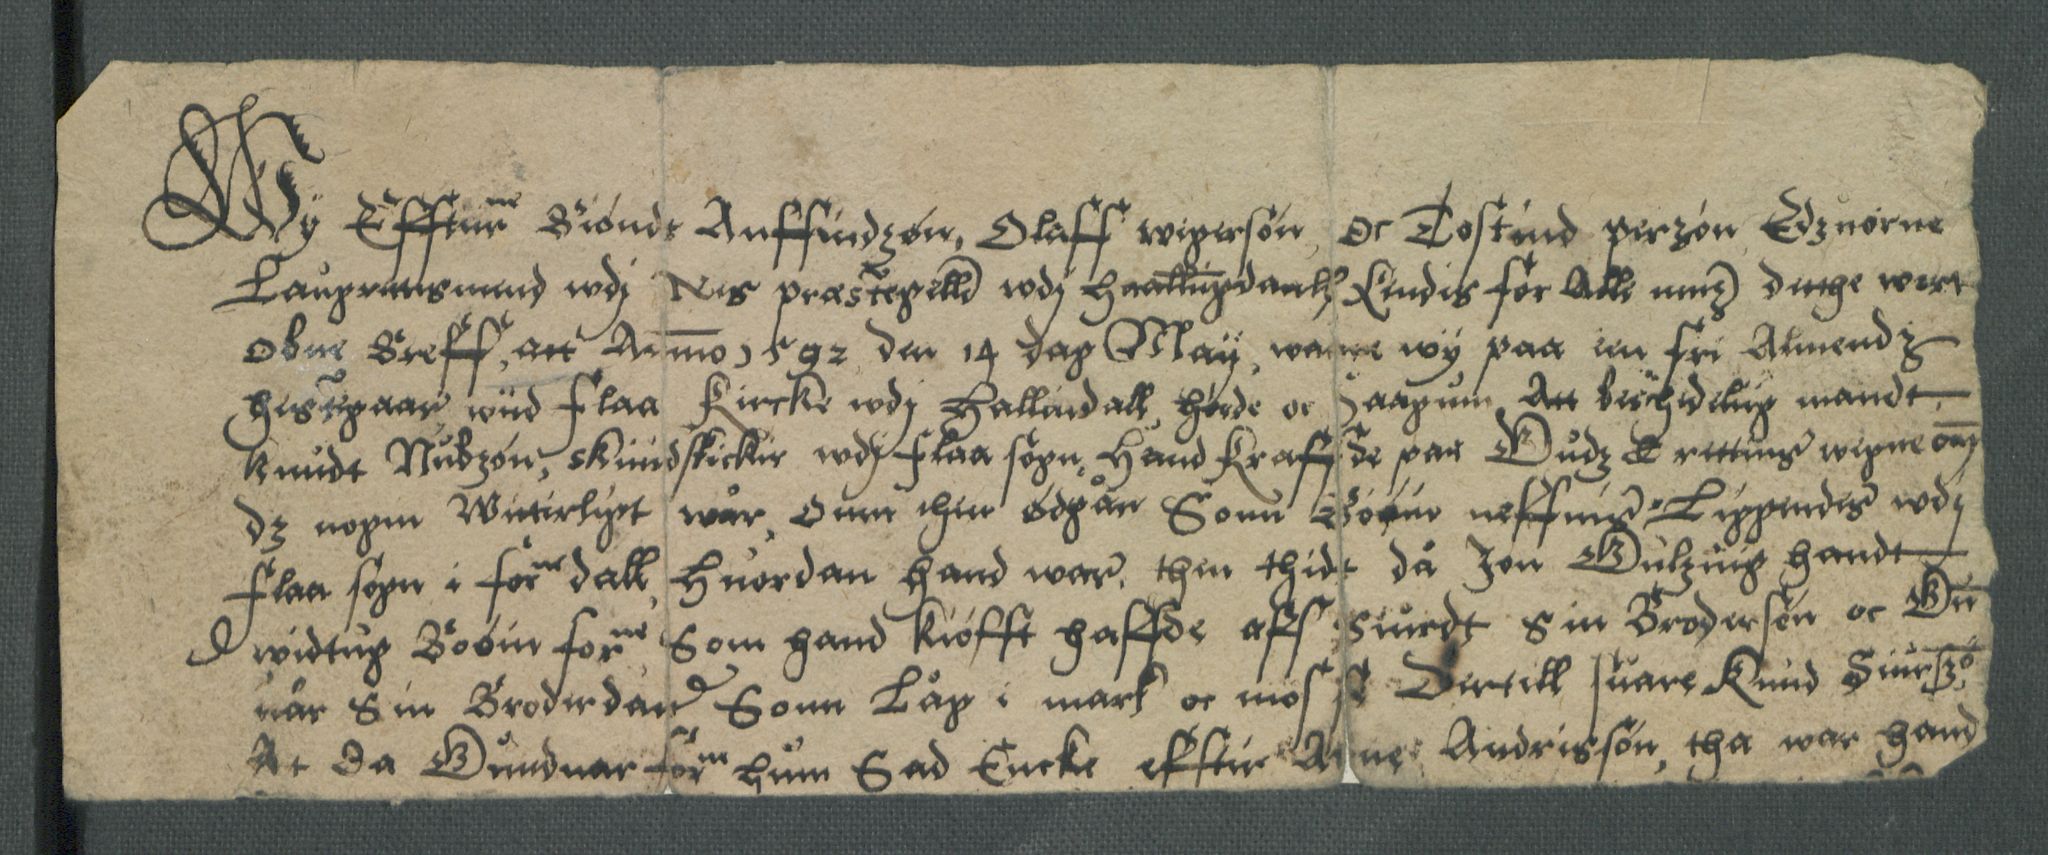 Wy Effterne Biøndt Anffindzøn, Olaff wigersøn, oc Tostind perzøn Edzuorne
Laugrettismend wdj Nes præstegelld wdj Haallingdaall Kendis for Alle mett dette wort
obne Breff, att Anno 1592 den 14 dag Maÿ, waare wÿ paa een fri Almendz
hestegaar wiid Flaa Kircke wdj Hallindall, hørde oc saagum Att beschedelig mandt
Knudt Nubzøn, skiindskicker wdj Flaa sogn, Hand Kraffde paa Gudz & rettens wegne om
dz nogen Witterligt war, Om then ödgaar Som Boöin neffnis Liggendis wdj
Flaa sogn i forne dall, Huordan hand war then thidt då Jon Gulzing handt
widtug Boöin forne Som hand kiöfft haffde aff Siurdt Sin Brodersön oc Gu
när Sin Broderdatter Som Låg i mark oc mosse Dertill suare Knud Siurszö
At da Gundnar forne hum Sad Encke effter Arne Andrissön, tha war hand